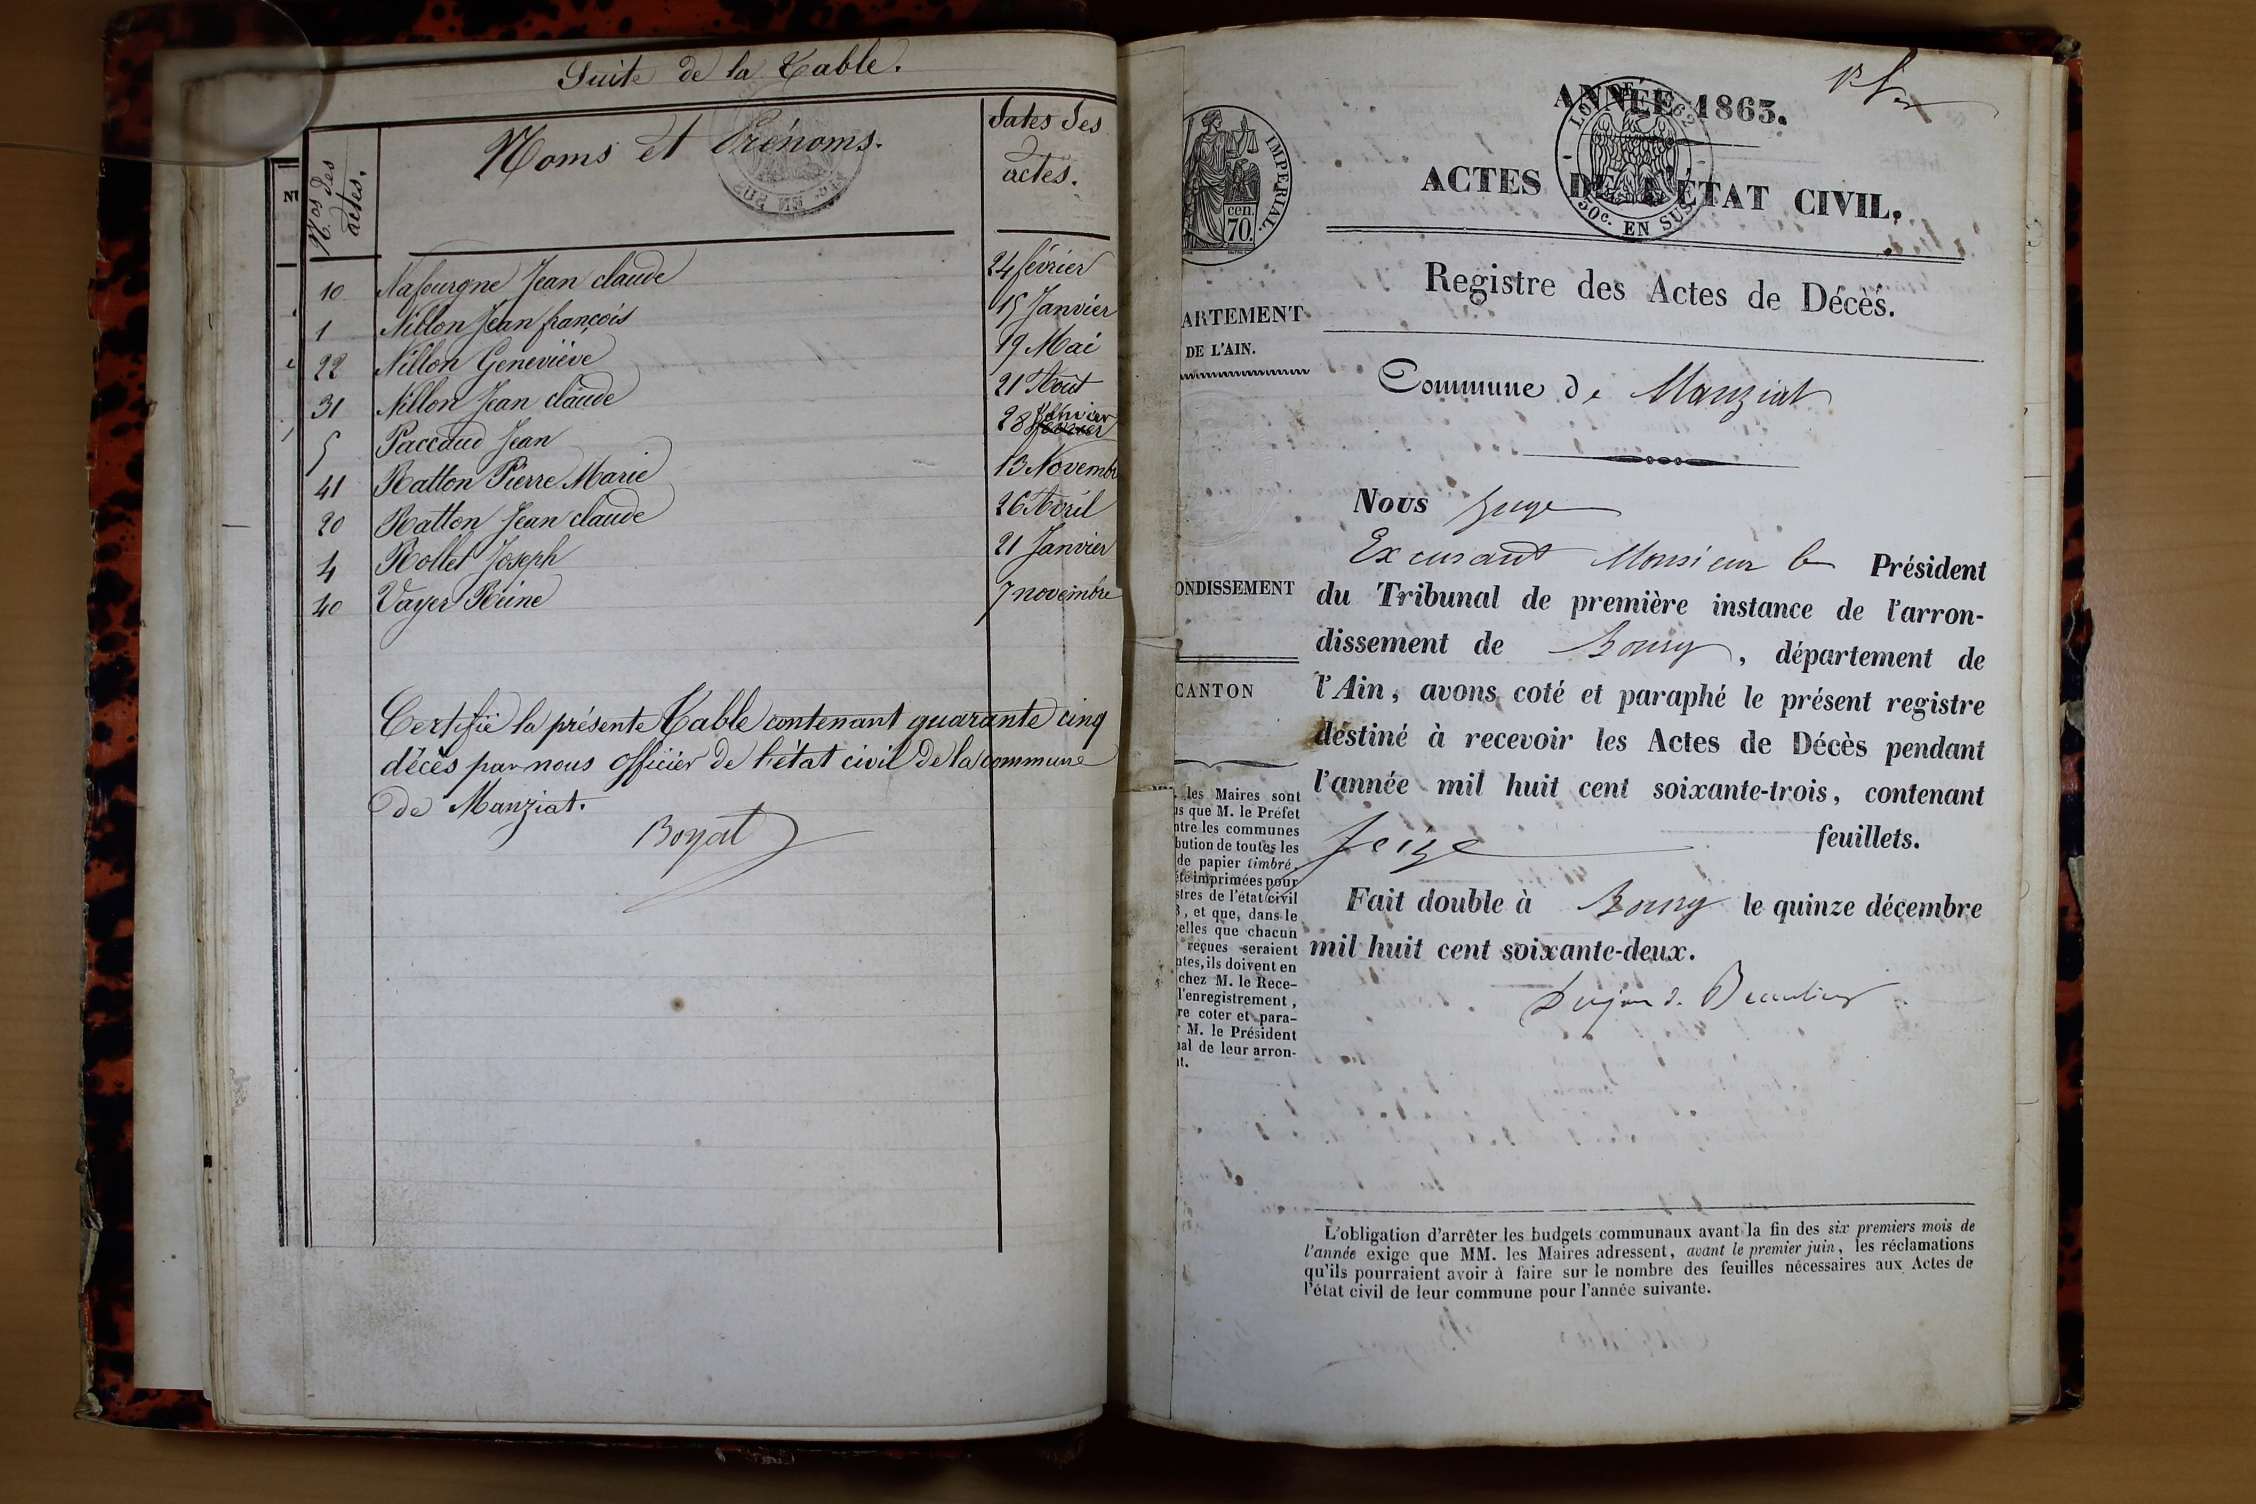 Suite de la Table.
N.os des actes.
Noms et Prénoms.
dates des actes.
EN SUS
10 Nafourgne Jean claude 24 février
1 Nillon Jean françois 15 Janvier
22 Nillon Geneviève 19 Mai
31 Nillon Jean claude 21 Aout
5 Paccaud Jean 28 Janvier
41 Ratton Pierre Marie 13 Novembre
20 Ratton Jean claude 26 Avril
4 Rollet Joseph 21 Janvier
40 Vayer Reine 7 novembre
Certifié la présente Table contenant quarante cinq
décès par nous officier de l'état civil de la commune
de Manziat.
Boyat
ANNÉE 1863.
IMPERIAL.
cen. 70
50c. EN SUS
ACTES DE L'ÉTAT CIVIL.
Registre des Actes de Décès.
ARTEMENT
DE L'AIN.
Commune de Manziat
Nous Juge
Excusant Monsieur le Président
ONDISSEMENT
du Tribunal de première instance de l'arron-
dissement de Bourg, département de
CANTON
l'Ain, avons coté et paraphé le présent registre
destiné à recevoir les Actes de Décès pendant
l'année mil huit cent soixante-trois, contenant
seize feuillets.
Fait double à Bourg le quinze décembre
mil huit cent soixante-deux.
les Maires sont
us que M. le Préfet
ntre les communes
bution de toutes les
de papier timbré
été imprimées pour
stres de l'état civil
3, et que, dans le
celles que chacun
reçues seraient
ntes, ils doivent en
chez M. le Rece-
l'enregistrement,
re coter et para-
r M. le Président
nal de leur arron-
nt.
L'obligation d'arrêter les budgets communaux avant la fin des six premiers mois de
l'année exige que MM. les Maires adressent, avant le premier juin, les réclamations
qu'ils pourraient avoir à faire sur le nombre des feuilles nécessaires aux Actes de
l'état civil de leur commune pour l'année suivante.